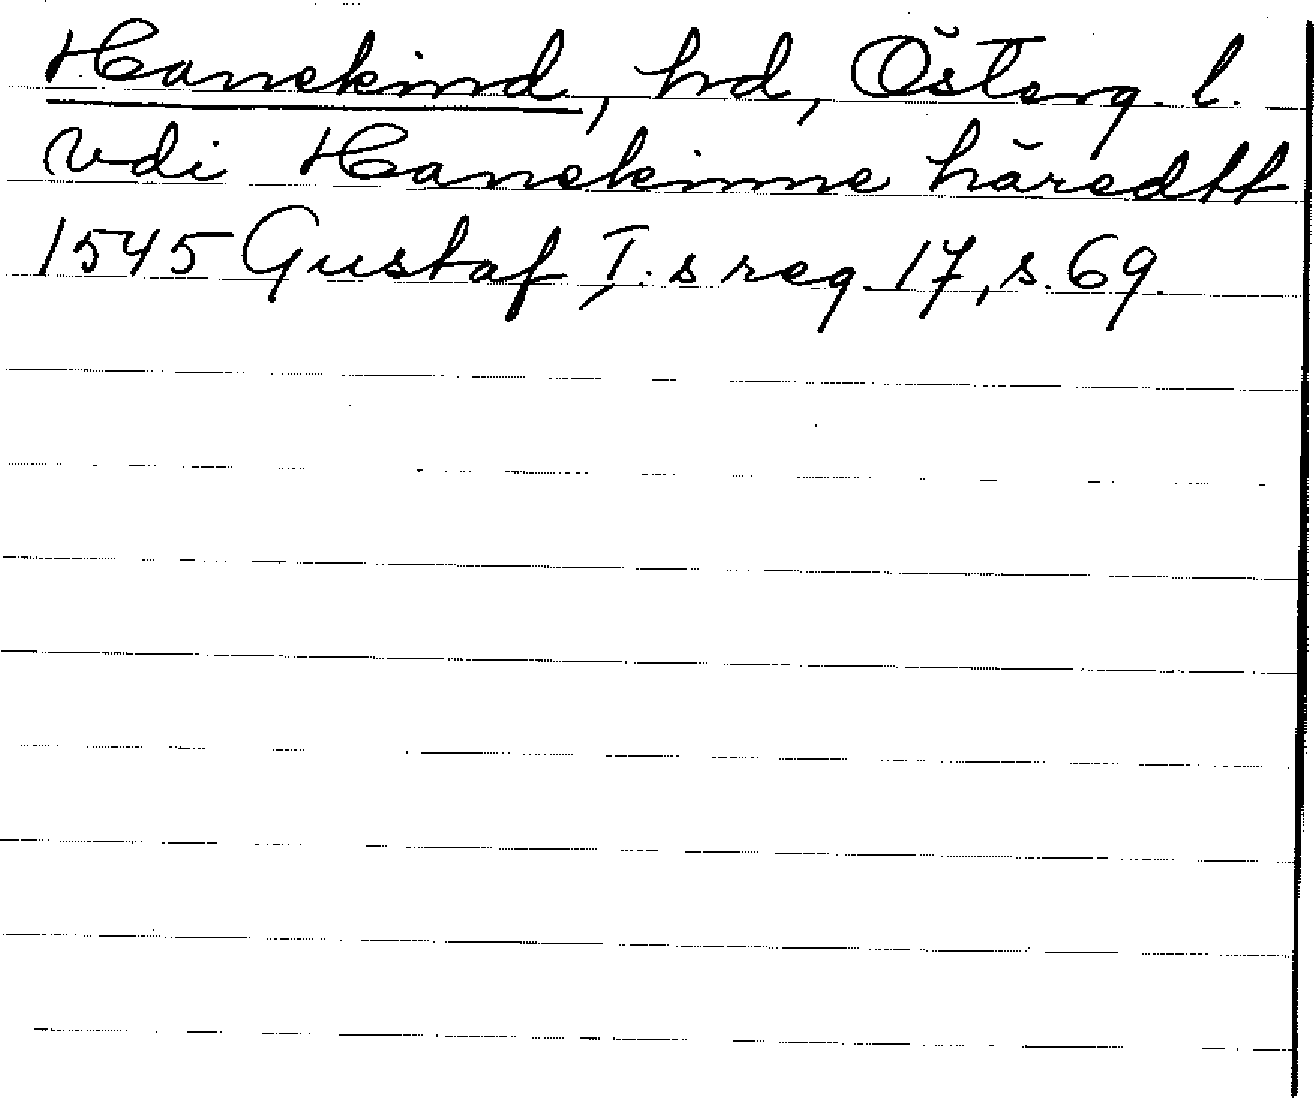 Hanekind, hd, Österg. l.
vdi Hanekinne häredtt
1545 Gustaf I:s reg. 17, s. 69.